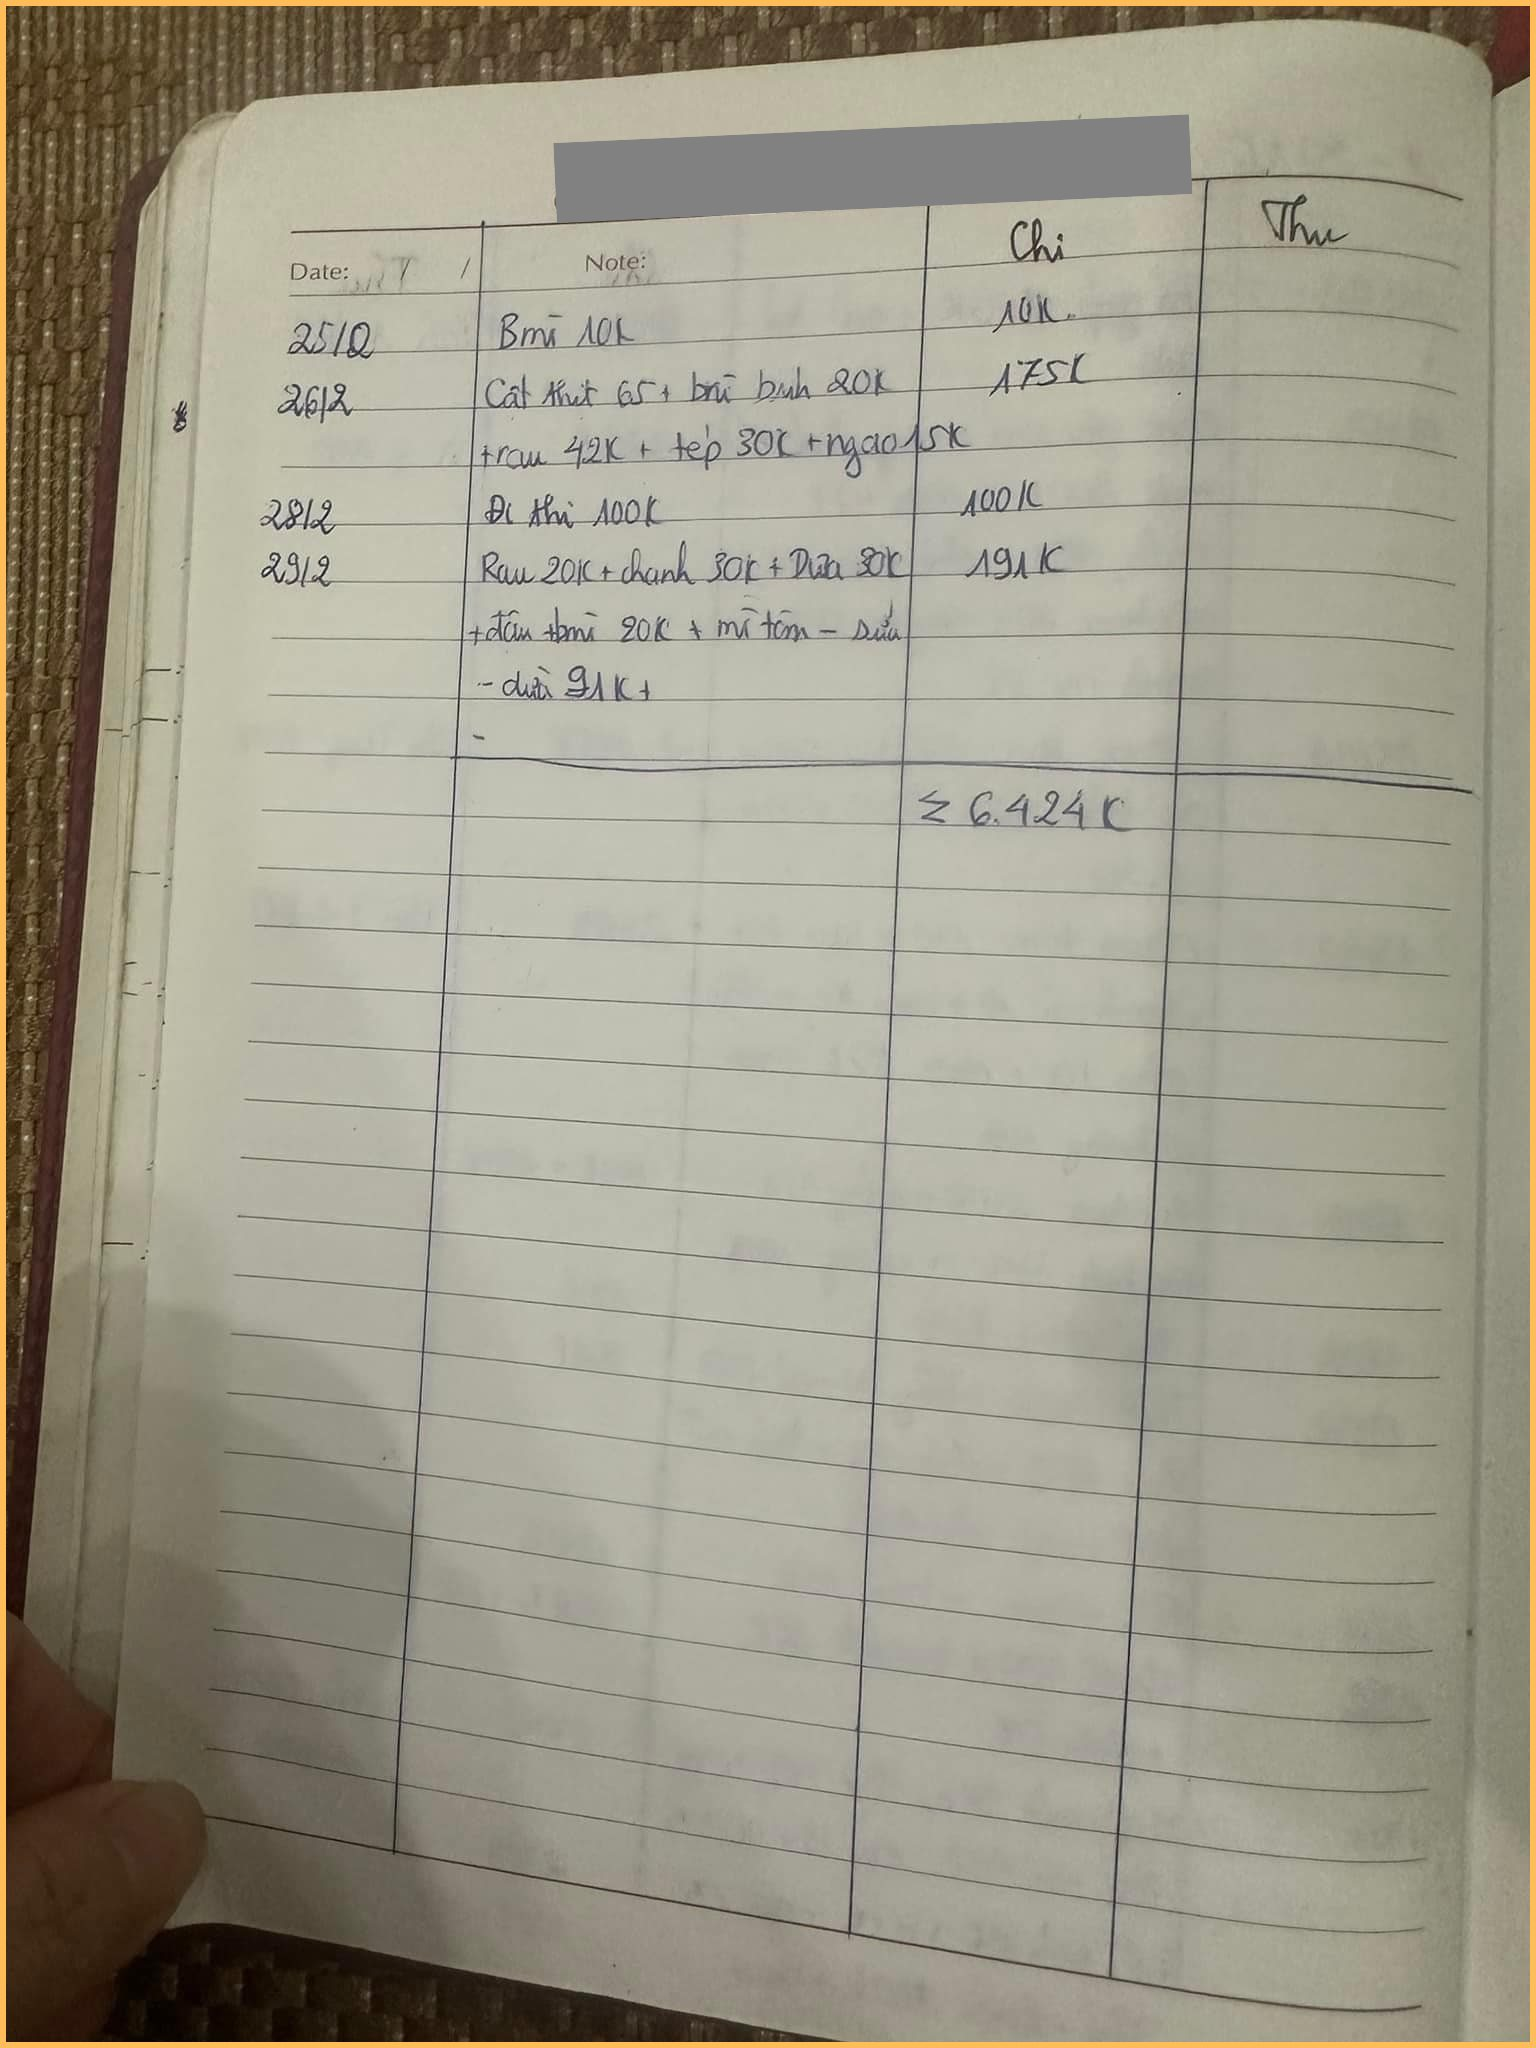 Chi Thu
Date: / / Note:
25/2 Bmì 10K 10K.
26/2 Cất thịt 65 + bmì bình 20K 175K
+rau 42K + tép 30K + ngao 15K
28/2 Đi thi 100K 100K
29/2 Rau 20K + chanh 30K + Dưa 30K 191K
+ đậu + bmì 20K + mì tôm - sữa
- dưa 91K +
-
Σ 6.424K